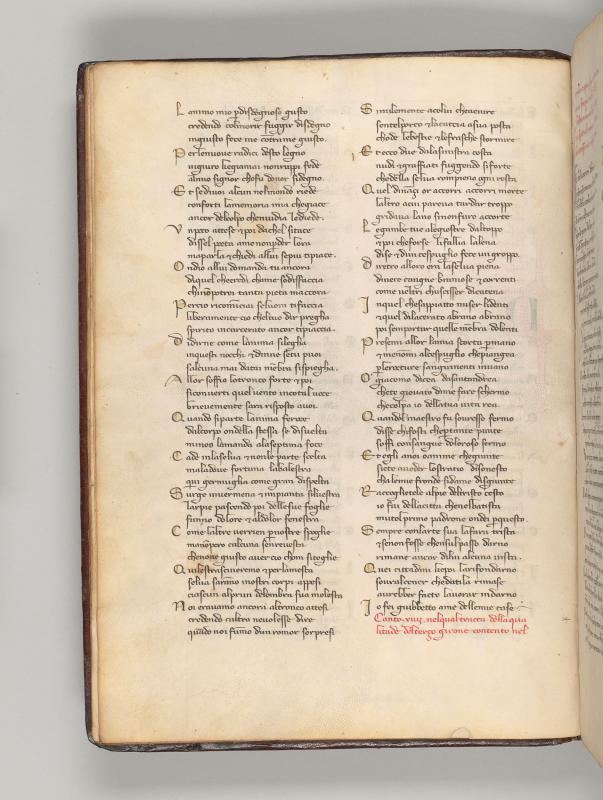 L animo mio p disdegnoso gusto
credendo colmorir fuggir disdegno
ingiusto fece me contrame giusto.
P er lenuove radici desto legno
vigiuro kegiamai nonruppi fede
almio signor chefu donor sidegno.
E t sedivoi alcun nelmondo riede
conforti lamemoria mia chegiace
ancor delcolpo chenvidia lediede.
V n poco attese & poi dachel sitace
dissel poeta ame nonperder lora
maparla & chiedi allui sepiu tipiace.
O ndio allui domanda tu ancora
diquel checredi chame sodisfaccia
chinō potrei tanta pieta maccora
P ercio ricominciai seluom tifaccia
liberamente cio cheltuo dir priegha
spirito incarcerato ancor tipiaccia.
D idirne come lanima silegha
inquesti nocchi & dinne setu puoi
salcuna mai datai mēbra sispiegha.
A llor soffio lotronco forte & poi
siconverti quel vento incotal voce
brievemente sara risposto avoi.
Q uando siparte lanima feroce
dalcorpo ondella stessa se disvelta
minos lamanda alasettima foce
C ade inlaselva & nonle parte scelta
maladove fortuna labalestra
qui germuglia come gran dispelta
S urge invermena & impianta silvestra
larpie pascendo poi dellesue foglie
fanno dolore & aldolor fenestra
C ome laltre verrien pnostre spoglie
manō pero calcuna senrivesta
chenone giusto aver cio chom sitoglie
Q uilestrascineremo & perlamesta
selva sarāno inostri corpi appesi
ciascun alprun delombra sua molesta
N oi eravamo ancora altronco attesi
credendo caltro nevolesse dire
quādo noi fumo dun romor sorpresi
S imilemente acolui chevenire
sentelporco & lacaccia asua posta
chode lebestie & lefrasche stormire
E t ecco due dalasinistra costa
nudi & graffiati fuggendo siforte
chedella selva rompieno ogni rosta
Q uel dināzi or accorri accorri morte
laltro acui pareva tardar troppo
gridava lano sinonfuro accorte
L egambe tue alegiostre daltoppo
& poi cheforse lifallia lalena
dise & dun cespuglio fece un groppo.
D iretro alloro era laselva piena
dinere cangne bramose & correnti
come veltri chuscisser dicatena
I nquel chesappiatto miser lidenti
& quel dilacerato abrano abrano
poi semportar quelle mēbra dolenti
P resemi allor lamia scorta pmano
& menōmi alcespuglio chepiangea
plerotture sanguinenti invano
O giacomo dicea dasantandrea
chete giovato dime fare schermo
checolpa io dellatua vita rea.
Q uandol maestro fu sovresso fermo
disse chifosti cheptante punte
soffi consangue doloroso sermo
E t egli anoi oanime chegiunte
siete aveder lostratio disonesto
cha lemie fronde sidame disgiunte
R accoglietele alpie deltristo cesto
io fui dellacitta chenelbatista
mutol primo padrone onde pquesto
S empre conlarte sua lafara trista
& senon fosse chensulpasso darno
rimane ancor dilui alcuna vista.
Q uei cittadini kepoi larifondarno
sovralcener chedatila rimase
avrebber fatto lavorar indarno
I o fei giubbetto ame dellemie case
Canto xiiij. nelqual tracta della qua
lita del terço girone contento nel